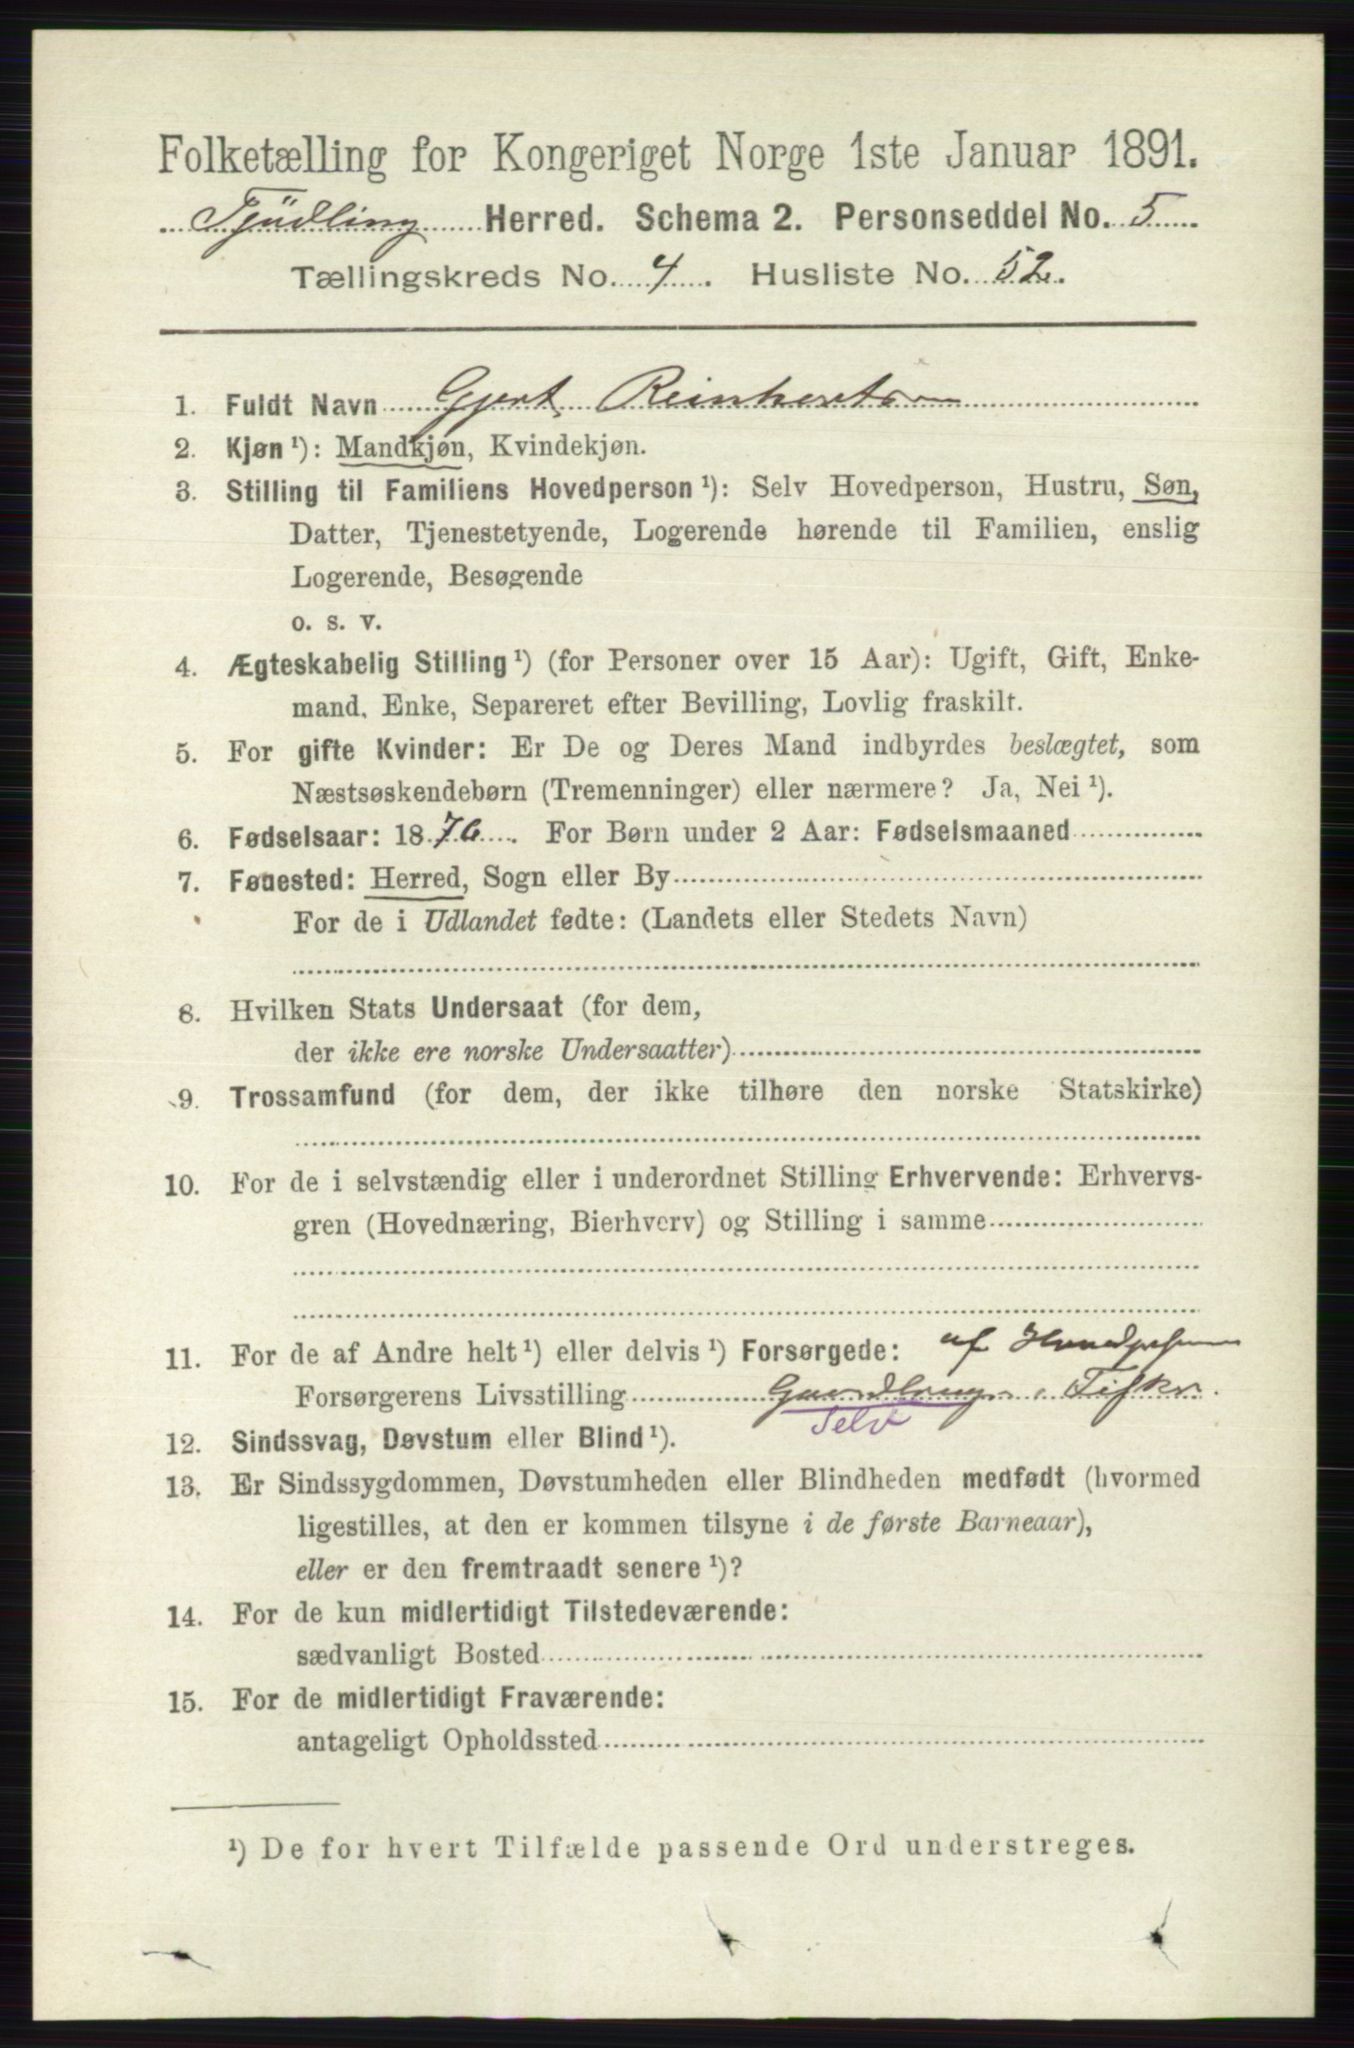 Folketælling for Kongeriget Norge 1ste Januar 1891.
Tjüdling Herred. Schema 2. Personseddel No. 5
Tællingskreds No. 4. Husliste No. 52.
1. Fuldt Navn Gjert
2. Kjøn ¹): Mandkjøn, Kvindekjøn.
3. Stilling til Familiens Hovedperson ¹): Selv Hovedperson, Hustru, Søn,
Datter, Tjenestetyende, Logerende hørende til Familien, enslig
Logerende, Besøgende
o. s. v.
4. Ægteskabelig Stilling ¹) (for Personer over 15 Aar): Ugift, Gift, Enke-
mand, Enke, Separeret efter Bevilling, Lovlig fraskilt.
5. For gifte Kvinder: Er De og Deres Mand indbyrdes beslægtet, som
Næstsøskendebørn (Tremenninger) eller nærmere? Ja, Nei ¹).
6. Fødselsaar: 1876. For Børn under 2 Aar: Fødselsmaaned
7. Føuested: Herred, Sogn eller By
For de i Udlandet fødte: (Landets eller Stedets Navn)
8. Hvilken Stats Undersaat (for dem,
der ikke ere norske Undersaatter)
9. Trossamfund (for dem, der ikke tilhøre den norske Statskirke)
10. For de i selvstændig eller i underordnet Stilling Erhvervende: Erhvervs-
gren (Hovednæring, Bierhverv) og Stilling i samme
11. For de af Andre helt ¹) eller delvis ¹) Forsørgede: af Hovedpersonen
Forsørgerens Livsstilling Gaardbruger, Fisker.
Selv
12. Sindssvag, Døvstum eller Blind ¹).
13. Er Sindssygdommen, Døvstumheden eller Blindheden medfødt (hvormed
ligestilles, at den er kommen tilsyne i de første Barneaar),
eller er den fremtraadt senere ¹)?
14. For de kun midlertidigt Tilstedeværende:
sædvanligt Bosted
15. For de midlertidigt Fraværende:
antageligt Opholdssted
¹) De for hvert Tilfælde passende Ord understreges.